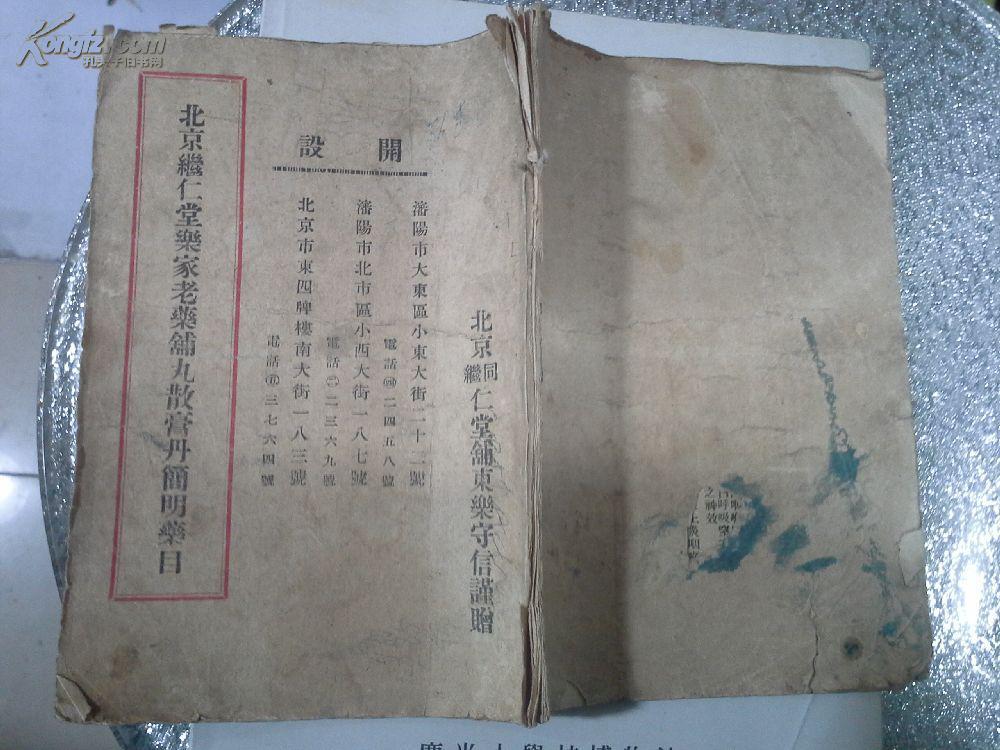 Kongfz.com
孔夫子旧书网
北京同繼仁堂舖東樂守信謹贈
開設
瀋陽市大東區小東大街二十二號
電話㊃二四五八號
瀋陽市北市區小西大街一八七號
電話㊁二三六九號
北京市東四牌樓南大街一八三號
電話㊄三七六四號
北京繼仁堂樂家老藥舖丸散膏丹簡明藥目
之神效